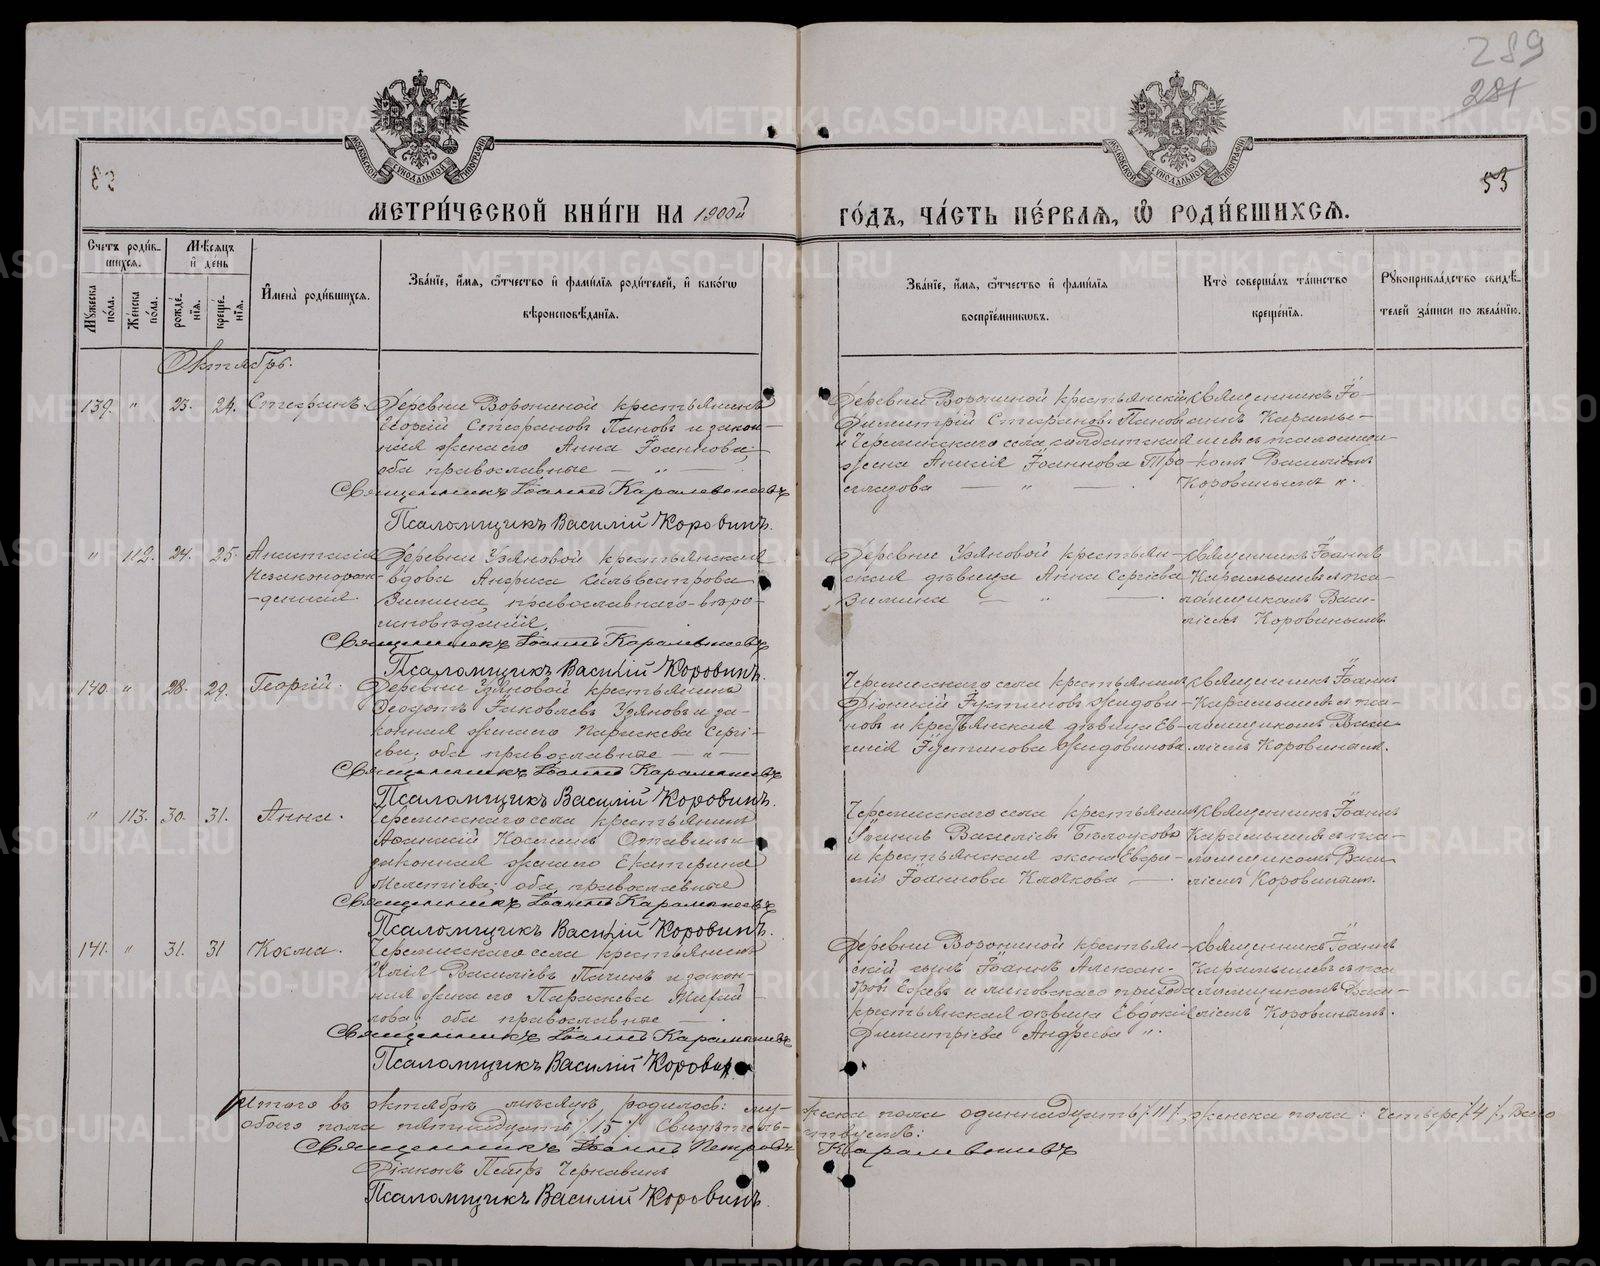 289
281
МОСКОВСКОЙ СѴНОДАЛЬНОЙ ТИПОГРАФІИ
МОСКОВСКОЙ СѴНОДАЛЬНОЙ ТИПОГРАФІИ
53
МЕТРИ́ЧЕСКОЙ КНИ́ГИ НА 1900й
ГО́ДЪ, ЧА́СТЬ ПЕ́РВАЯ, Ѡ РОДИ́ВШИХСЯ.
Счетъ роди́вшихся.
Мꙋжеска по́ла.
Же́нска по́ла.
Мѣсяцъ и де́нь
рожде́нїя.
креще́нїя.
И҆мена̀ роди́вшихся.
Зва́нїе, и҆́мя, ѻ҆́тчество и҆ фами́лїя роди́телей, и҆ како́гѡ
вѣроисповѣ́данїя.
Зва́нїе, и҆́мя, ѻ҆́тчество и҆ фами́лїя
воспрїе́мниковъ.
Кто̀ соверша́лъ та́инство
креще́нїя.
Рꙋкоприкла́дство свидѣ́-
телей за́писи по жела́нїю.
Октябрь.
139. " 23. 24. Стефанъ.
Деревни Ворониной крестьянинъ
Георгій Стефановъ Пановъ и закон-
ная жена его Анна Іоаннова,
оба православные — " —
Священникъ Іоаннъ Карамышевъ
Псаломщикъ Василій Коровинъ.
Деревни Ворониной крестьянскій
Димитрій Стефановъ Пановъ
и Черемисскаго села солдатская
жена Анисія Іоаннова Тро
— " — .
Священникъ Іо-
аннъ Карамы-
шевъ съ псаломщи-
комъ Василіемъ
Коровинымъ ".
" 112. 24. 25. Анастасія
незаконорож-
-денная.
Деревни Узяновой крестьянская
вдова Сильвестрова
Зимина, православнаго вѣро-
исповѣданія.
Священникъ Іоаннъ Карамышевъ
Псаломщикъ Василій Коровинъ.
Деревни Узяновой крестьян-
ская дѣвица Анна Сергіева
Зимина — " — .
Священникъ Іоаннъ
Карамышевъ съ пса-
ломщикомъ Васи-
ліемъ Коровинымъ
140. " 28. 29. Георгій.
Деревни Узяновой крестьянинъ
Ѳеодотъ Іаковлевъ Узяновъ и за-
конная жена его Параскева Сергі-
ева, оба православные — " —
Священникъ Іоаннъ Карамышевъ
Псаломщикъ Василій Коровинъ.
Черемисскаго села крестьянинъ
Діонисій Іустиновъ Жидови-
новъ и крестьянская дѣвица Ев-
Іустинова Жидовинова
Священникъ Іоаннъ
Карамышевъ съ пса-
ломщикомъ Васи-
ліемъ Коровинымъ.
" 113. 30. 31. Анна.
Черемисскаго села крестьянинъ
Косминъ и
законная жена его Екатерина
Мелетіева, оба православные
Священникъ Іоаннъ Карамышевъ
Псаломщикъ Василій Коровинъ.
Черемисскаго села крестьянинъ
Іоаннъ Василіевъ Бѣлоусовъ
и крестьянская жена Евфи-
мія Іоаннова Клочкова — .
Священникъ Іоаннъ
Карамышевъ съ пса-
ломщикомъ Васи-
ліемъ Коровинымъ.
141. " 31. 31 Косма.
Черемисскаго села крестьянинъ
Илія Василіевъ Пачинъ и закон-
ная жена его Параскева Михай-
лова, оба православные — .
Священникъ Іоаннъ Карамышевъ
Псаломщикъ Василій Коровинъ.
Деревни Ворониной крестьян-
скій сынъ Іоаннъ Алексан-
дровъ Ежевъ и Липовскаго прихода
крестьянская дѣвица Евдокія
Димитріева Андреева ".
Священникъ Іоаннъ
Карамышевъ съ пса
ломщикомъ Васи-
ліемъ Коровинымъ.
Итого въ октябрѣ мѣсяцѣ родилось: му-жеска пола одиннадцать /11/, женска пола: четыре /4/, Всего
обоего пола пятнадцать /15/ Свидѣтель-ствуемъ:
Священникъ Іоаннъ Петровъ Карамышевъ
Діаконъ Петръ Чернавинъ
Псаломщикъ Василій Коровинъ.
METRIKI.GASO-URAL.RU